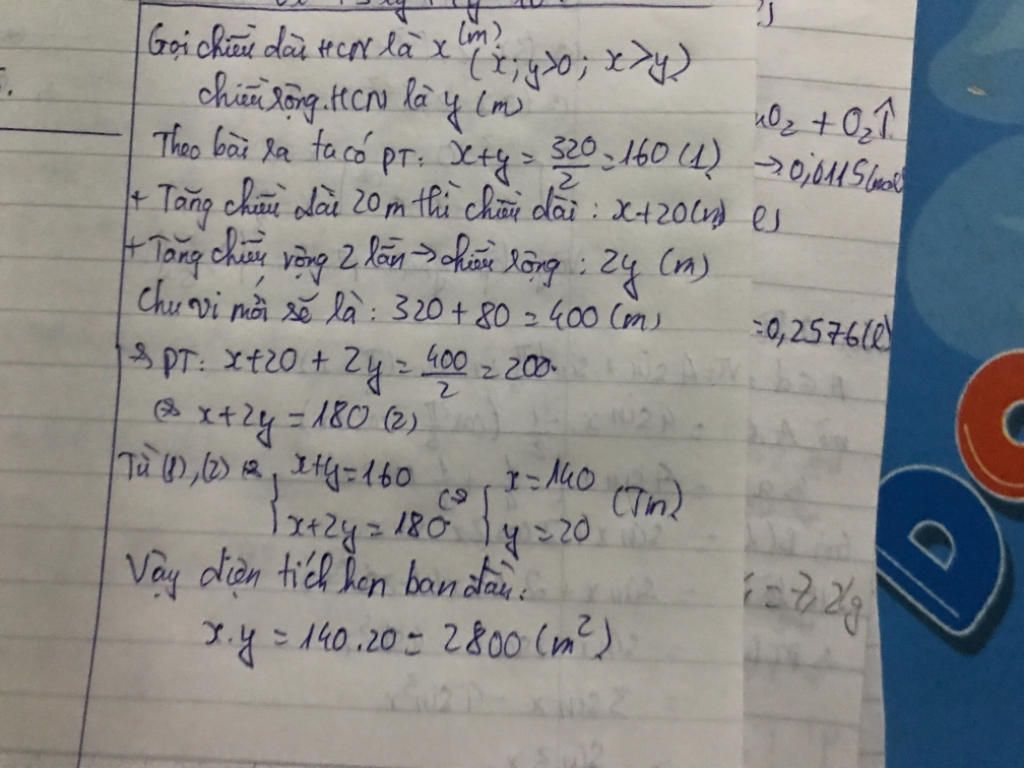 Gọi chiều dài HCN là x (m)
(x; y>0; x>y)
chiều rộng HCN là y (m)
Theo bài ra ta có PT: x+y = 320/2 = 160 (1)
+ Tăng chiều dài 20m thì chiều dài : x+20(m)
+ Tăng chiều rộng 2 lần → chiều rộng : 2y (m)
Chu vi mới sẽ là : 320 + 80 = 400 (m)
=> PT: x+20 + 2y = 400/2 = 200
<=> x+2y = 180 (2)
Từ (1), (2) => { x+y=160 <=> { x=140 (Tm)
x+2y = 180 y = 20
Vậy diện tích hcn ban đầu:
x.y = 140.20 = 2800 (m²)
O₂ + O₂↑
→ 0,0115 (mol)
=0,2576(l)
= 7,2g
DO